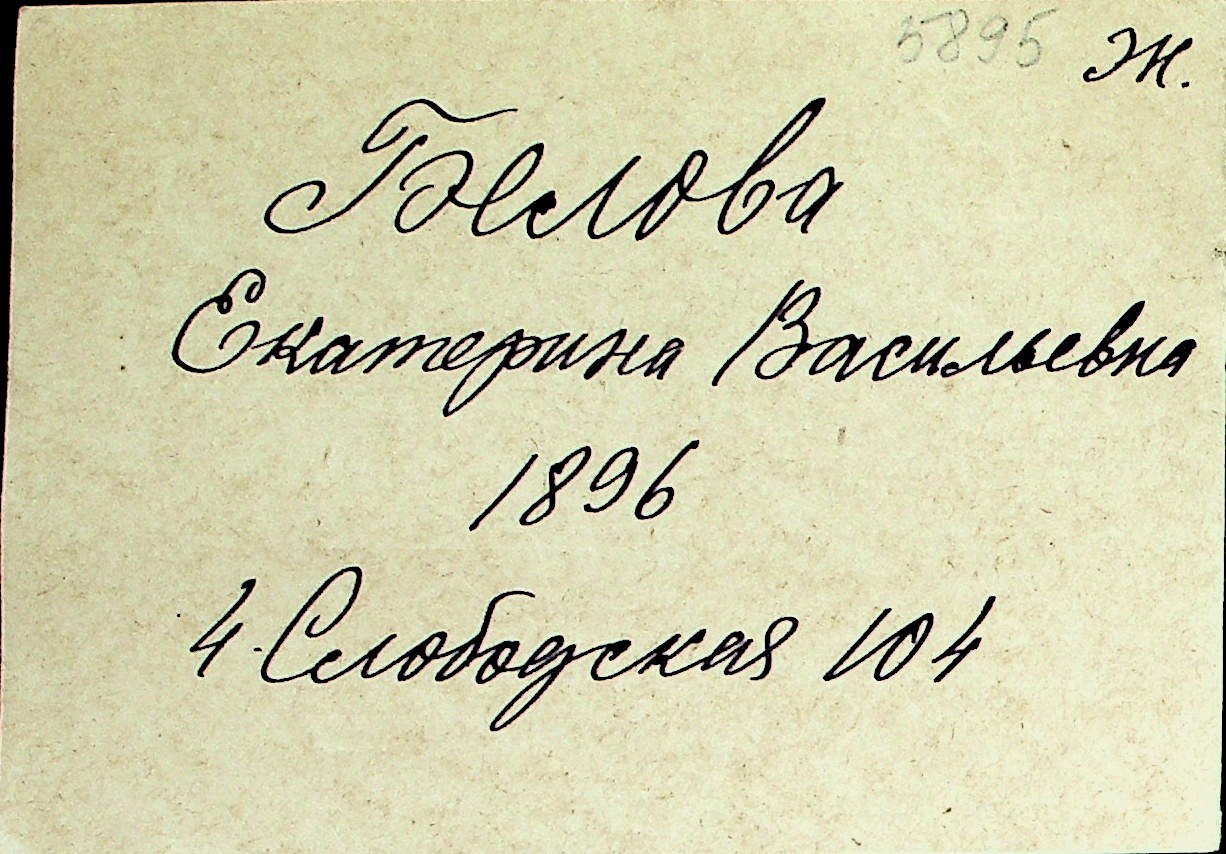 5895 Ж.
Белова
Екатерина Васильевна
1896
4. Слободская 104